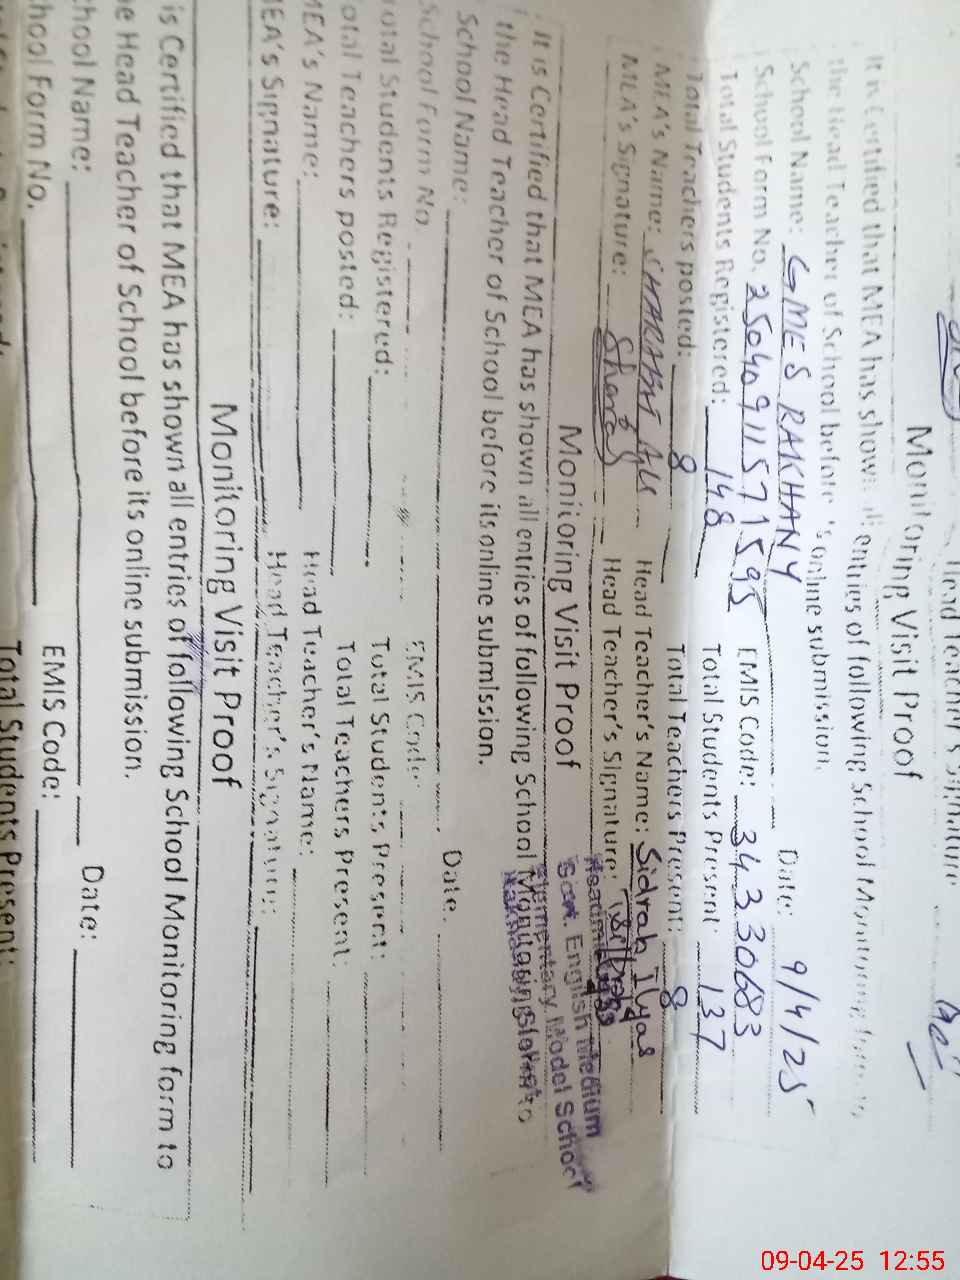 Head Teacher's Signature
Monitoring Visit Proof
It is Certified that MEA has shown all entries of following School Monitoring form to
the Head Teacher of School before its online submission.
School Name: GMES RAKHANY Date: 9/4/25
School Form No. 25040911571595 EMIS Code: 34330683
Total Students Registered: 148 Total Students Present: 137
Total Teachers posted: 8 Total Teachers Present: 8
MEA's Name: Head Teacher's Name: Sidrah Ilyas
MEA's Signature: Head Teacher's Signature:
Headmistress
Govt. English Medium
Elementary Model School
Monitoring Visit Proof
It is Certified that MEA has shown all entries of following School Monitoring form to
the Head Teacher of School before its online submission.
School Name: Date:
School Form No. EMIS Code:
Total Students Registered: Total Students Present:
Total Teachers posted: Total Teachers Present
MEA's Name: Head Teacher's Name:
MEA's Signature: Head Teacher's Signature:
Monitoring Visit Proof
is Certified that MEA has shown all entries of following School Monitoring form to
e Head Teacher of School before its online submission.
chool Name: Date:
hool Form No. EMIS Code:
Total Students Present:
09-04-25 12:55